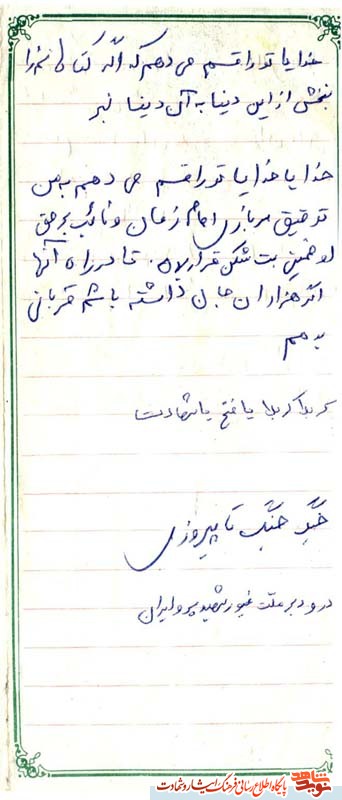 خدایا تو را قسم می دهم که اگه گناها نم را
نبخشی از این دنیا به آن دنیا نبر
خدایا خدایا تو را قسم می دهم به من
توفیق سربازی امام زمان و نائب بر حق
او خمینی بت شکن قرار بده. تا در راه آنها
اگر هزاران جان داشته باشم قربانی
بدهم
کربلا کربلا یا فتح یا شهادت
جنگ جنگ تا پیروزی
درود بر ملت غیور شهید پرور ایران
نوید شاهد
پایگاه اطلاع رسانی فرهنگ ایثار و شهادت